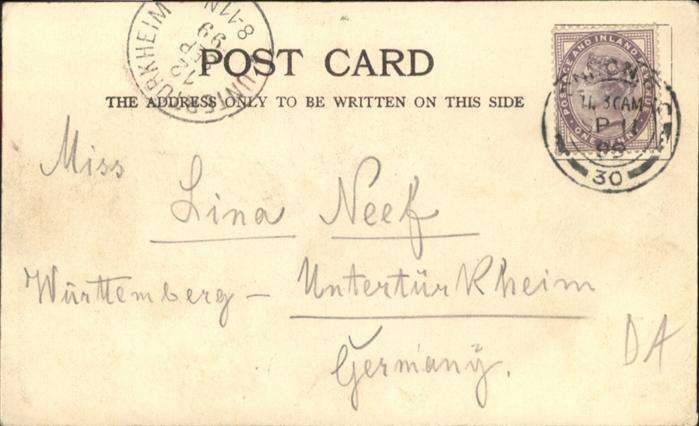 POST CARD
THE ADDRESS ONLY TO BE WRITTEN ON THIS SIDE
UNTERTÜRKHEIM
8-11N
12
99
POSTAGE AND INLAND REVENUE
ONE PENNY
AM
30
Miss
Lina Neef
Württemberg – Untertürkheim
Germany.
DA